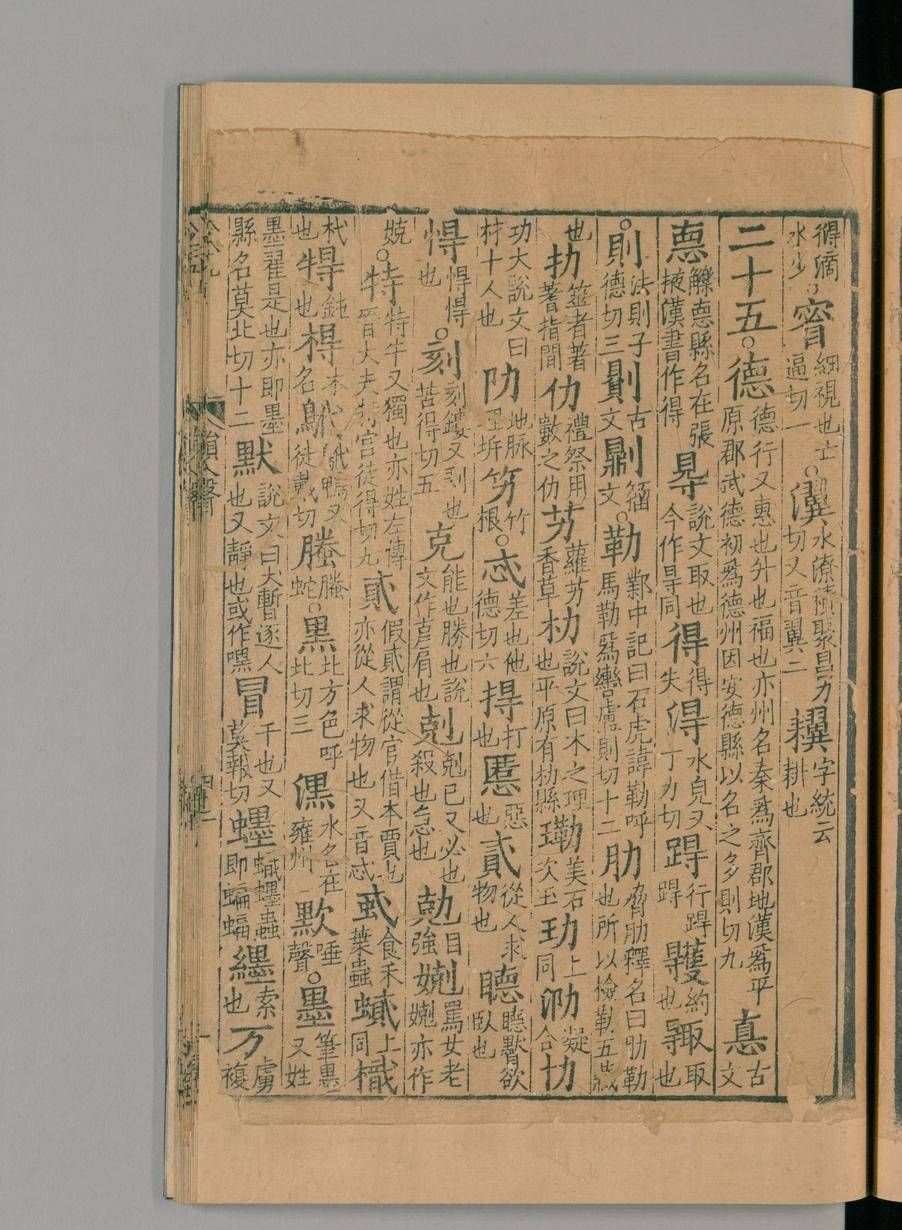 滴水少。䆡細視也士逼切一。瀷水潦積聚昌力切又音翼二𦔜字統云耕也
二十五。德德行又惠也升也福也亦州名秦爲齊郡地漢爲平原郡武德初爲德州因安德縣以名之多則切九悳古文
㥁縣名在張掖漢書作得㝵說文取也今作㝵同得得失淂水皃又丁力切行約也取也
。則法則子德切三𠟭古文籀文。勒鄴中記曰石虎諱勒呼馬勒爲轡盧則切十二肋脅肋釋名曰肋勒也所以檢勒五藏
也扐筮者著蓍指間仂禮祭用數之仂艻蘿艻香草朸說文曰木之理也平原有朸縣美石次玉玏上同泐凝合忇
功大說文曰材十人也阞地脈理坼竻竹根。忒差也他德切六打也慝惡也貣從人求物也欲臥也
也。刻刻鏤又剋也苦得切五克能也勝也說文作肩也剋剋己又必也殺也急也勀自強罵女老亦作
嬈。特特牛又獨也亦姓左傳晉大夫特宮徒得切九貣假貣謂從官借本賈也亦從人求物也又音忒食禾葉蟲蟘上同樴
杙也鈍也木名徒戴切螣螣蛇。黑北方色呼北切三㶡水名在雍州唾聲。墨筆墨又姓
墨翟是也亦即墨縣名莫北切十二默說文曰犬暫逐人也又靜也或作嘿冒干也又莫報切蟔蛅蟔蟲即蝙蝠纆索也万虜複